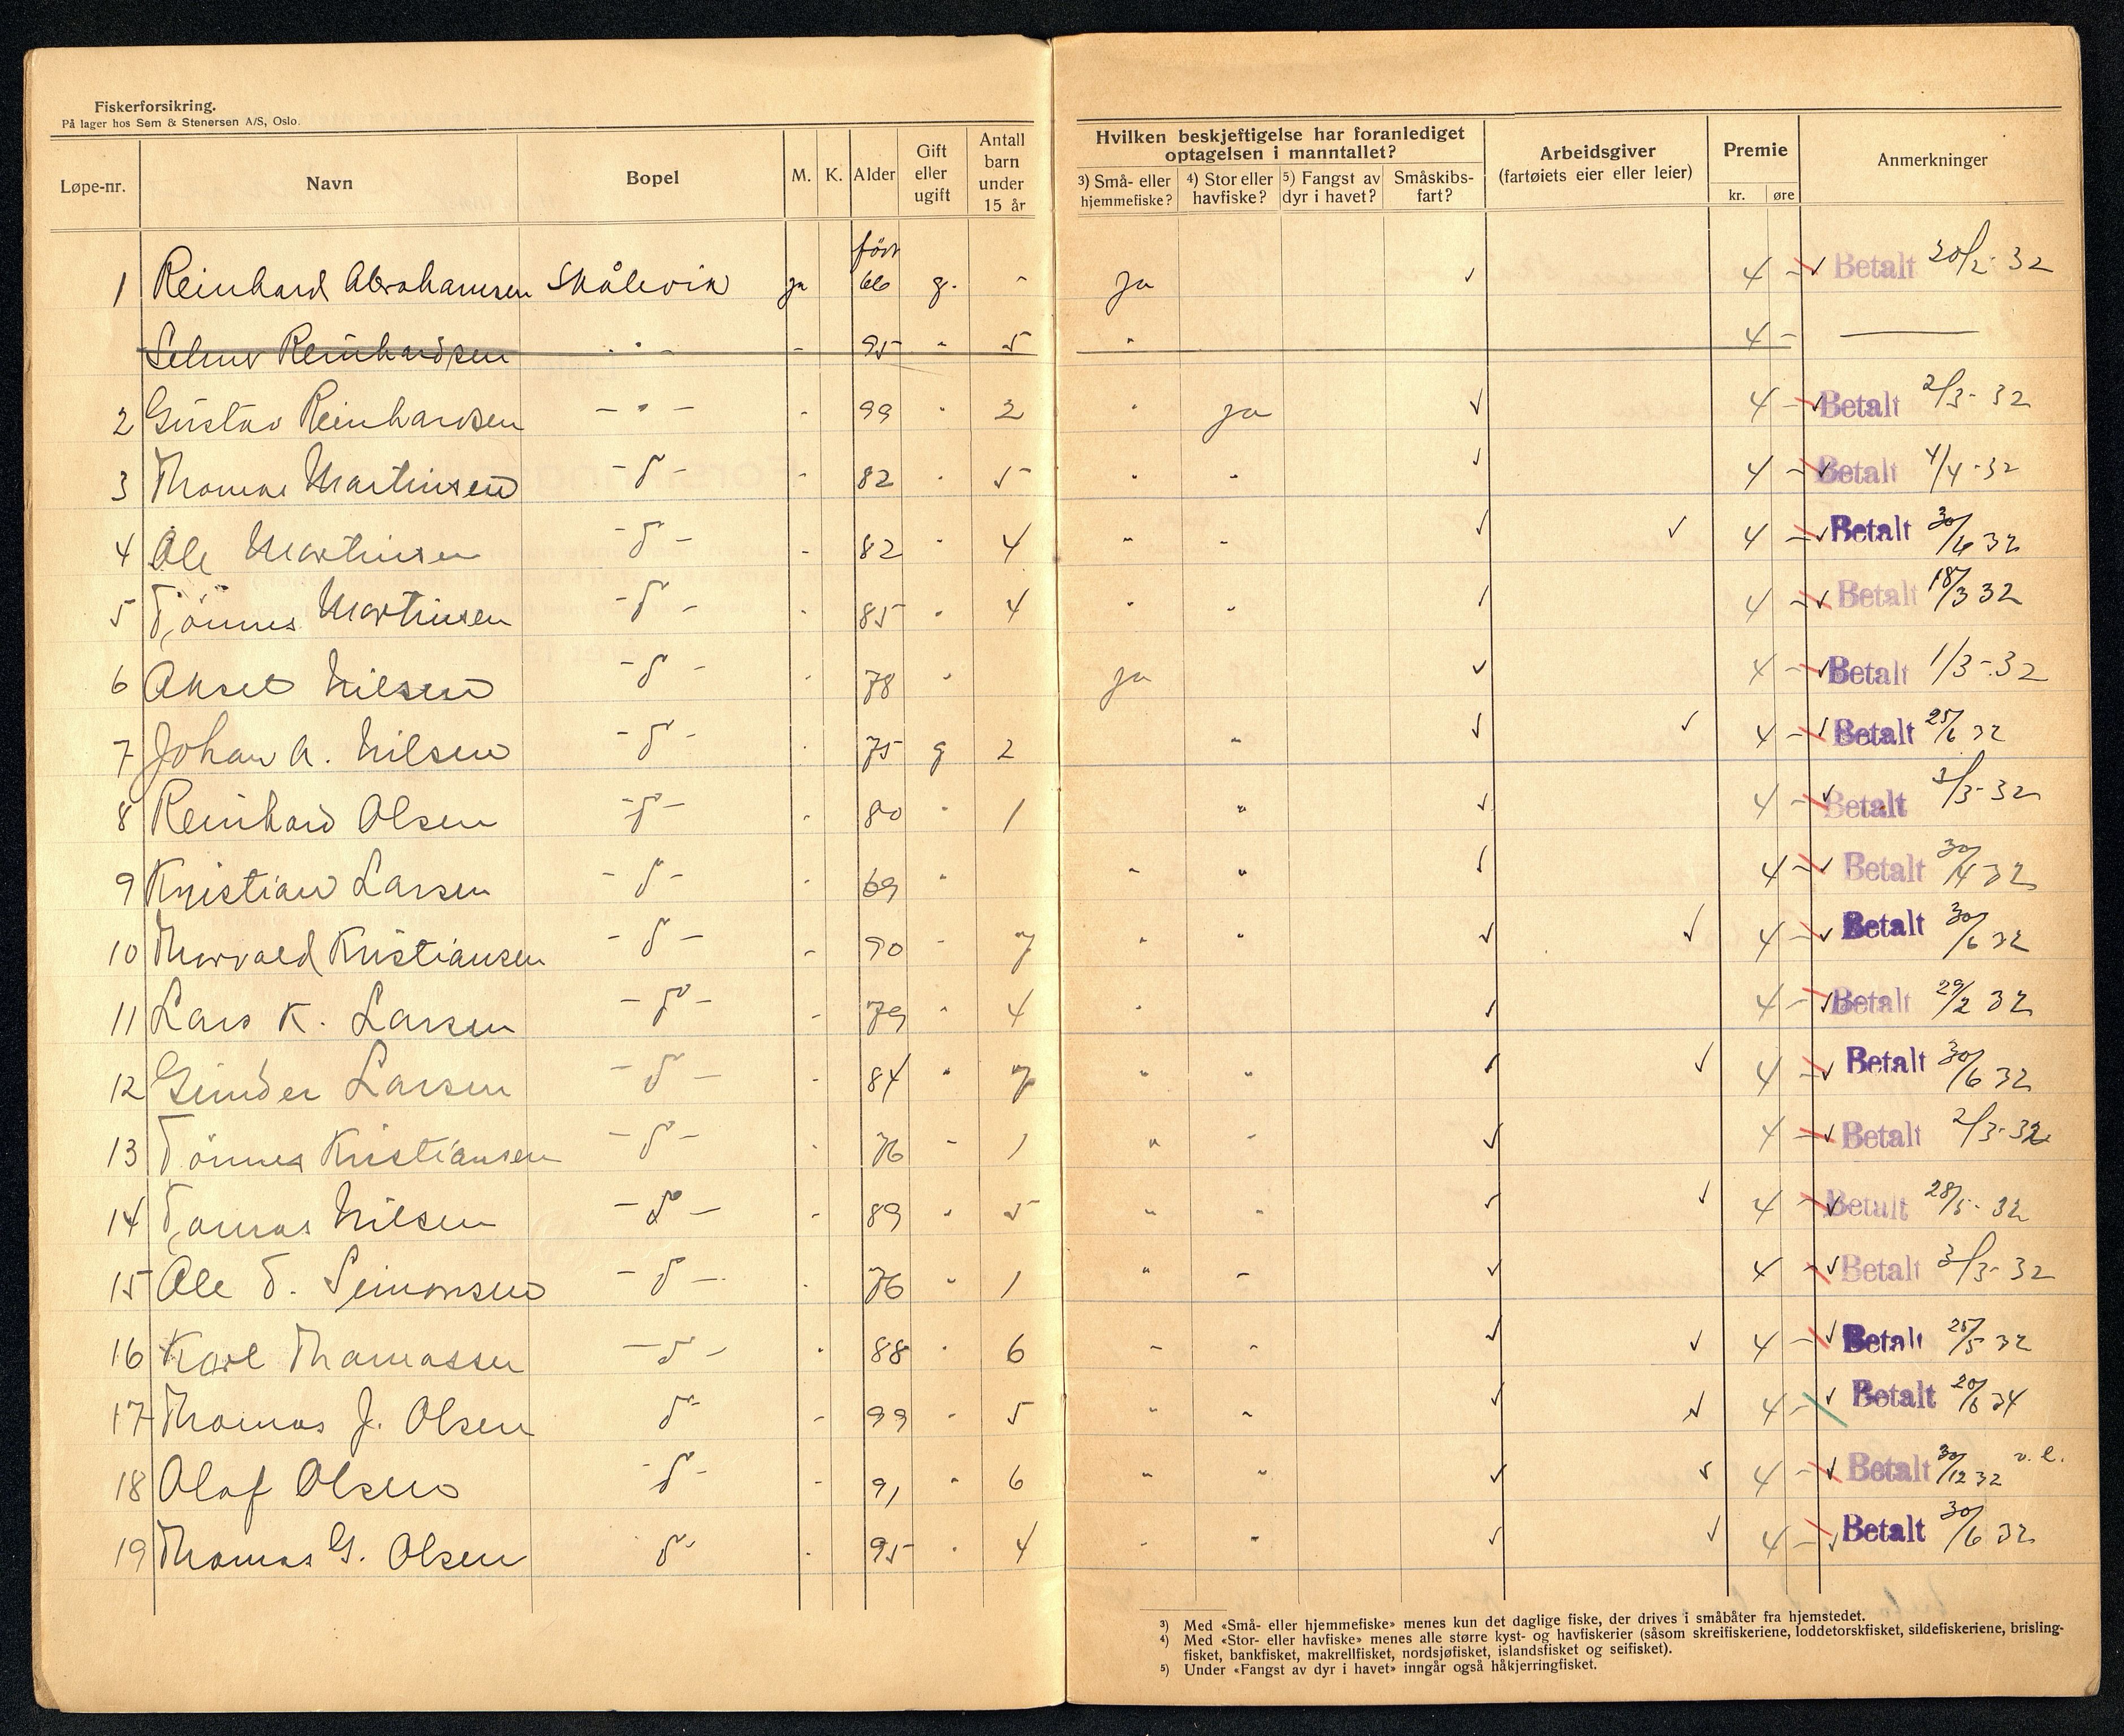 Fiskerforsikring.
På lager hos Sem & Stenersen A/S, Oslo.
Løpe-nr. Navn Bopel M. K. Alder Gift eller ugift Antall barn under 15 år
Hvilken beskjeftigelse har foranlediget optagelsen i manntallet?
3) Små- eller hjemmefiske? 4) Stor eller havfiske? 5) Fangst av dyr i havet? Småskibsfart?
Arbeidsgiver (fartøiets eier eller leier) Premie kr. øre Anmerkninger
1 Reinhard Abrahamsen Skålevik ja født 66 g. - ja ✓ 4 - ✓ Betalt 20/2- 32
Selmer Reinhardsen - " - - 95 " 5 " 4 -
2 Gustav Reinhardsen - " - - 99 " 2 " ja ✓ 4 - ✓ Betalt 2/3- 32
3 Thomas Martinsen - d - - 82 " 5 " " ✓ 4 - ✓ Betalt 4/4-32
4 Ole Martinsen - d - - 82 " 4 " " ✓ ✓ 4 - ✓ Betalt 30/6 32
5 Tönnes Martinsen - d - - 85 " 4 " " ✓ 4 - ✓ Betalt 18/3 32
6 Aksel Nilsen - d - - 78 " ja ✓ 4 - ✓ Betalt 1/3-32
7 Johan A. Nilsen - d - - 75 g 2 " ✓ ✓ 4 - ✓ Betalt 25/6 32
8 Reinhard Olsen - d - - 80 " 1 " ✓ 4 - ✓ Betalt 2/3- 32
9 Kristian Larsen - d - - 69 " " " ✓ 4 - ✓ Betalt 30/4 32
10 Thorvald Kristiansen - d - - 90 " 7 " " ✓ ✓ 4 - ✓ Betalt 30/6 32
11 Lars K. Larsen - d - - 79 " 4 " ✓ 4 - ✓ Betalt 29/2 32
12 Gunder Larsen - d - - 84 " 7 " " ✓ ✓ 4 - ✓ Betalt 30/6 32
13 Tönnes Kristiansen - d - - 76 " 1 " " ✓ 4 - ✓ Betalt 2/3-32
14 Tomas Nilsen - d - - 89 " 5 " " ✓ ✓ 4 - ✓ Betalt 28/5- 32
15 Ole T. Simonsen - d - - 76 " 1 " " ✓ 4 - ✓ Betalt 3/3- 32
16 Karl Thomassen - d - - 88 " 6 " " ✓ ✓ 4 - ✓ Betalt 25/5 32
17 Thomas J. Olsen d - - 99 " 5 " " ✓ ✓ 4 - ✓ Betalt 20/6 34
18 Olaf Olsen - d - - 91 " 6 " " ✓ ✓ 4 - ✓ Betalt 30/12 32 v. l.
19 Thomas G. Olsen d - - 95 " 4 " " ✓ ✓ 4 - ✓ Betalt 30/6 32
3) Med «Små- eller hjemmefiske» menes kun det daglige fiske, der drives i småbåter fra hjemstedet.
4) Med «Stor- eller havfiske» menes alle større kyst- og havfiskerier (såsom skreifiskeriene, loddetorskfisket, sildefiskeriene, brisling-
fisket, bankfisket, makrellfisket, nordsjøfisket, islandsfisket og seifisket).
5) Under «Fangst av dyr i havet» inngår også håkjerringfisket.